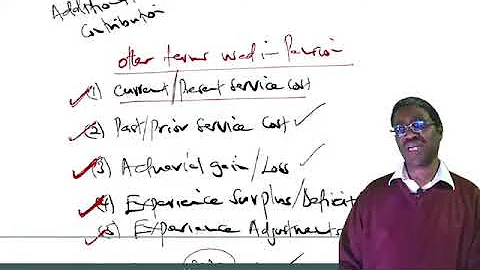 Additional
Contribution
Other terms used in Pension
(1) Current/Present Service Cost
(2) Past/Prior Service Cost
(3) Actuarial gain/Loss
(4) Experience Surplus/Deficit
(5) Experience Adjustments